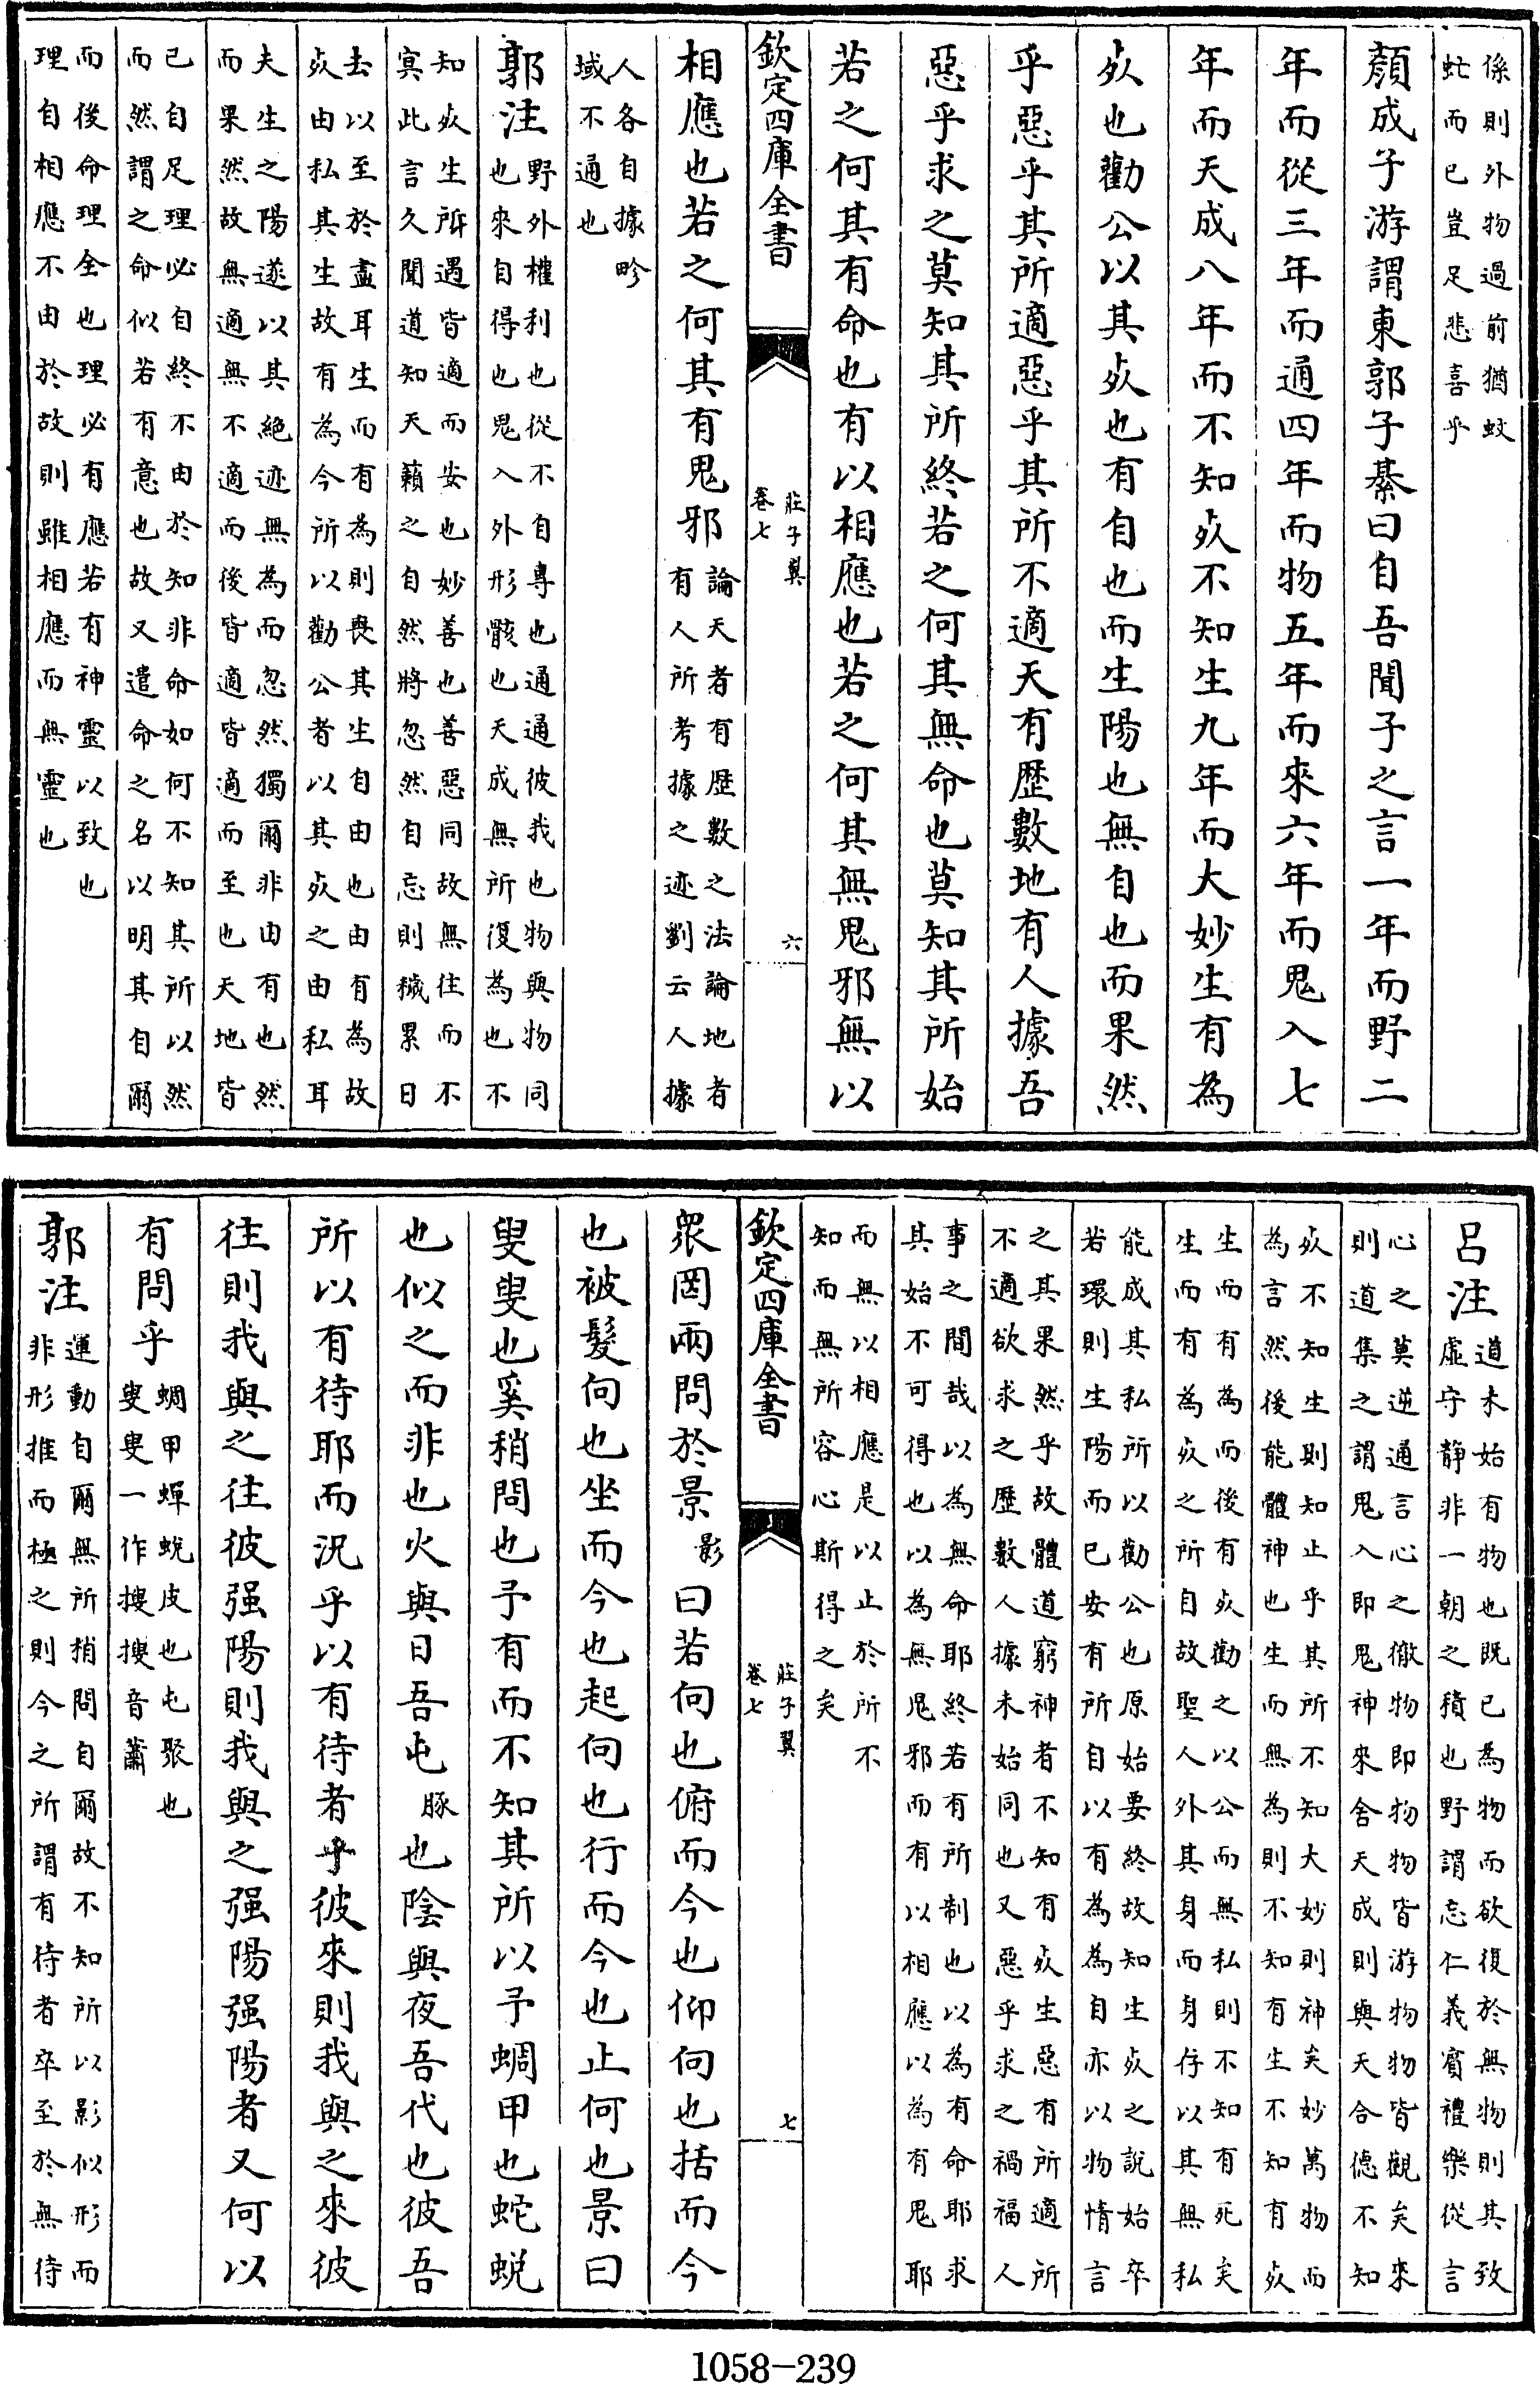 係則外物過前猶蚊
虻而已豈足悲喜乎
顔成子游謂東郭子綦曰自吾聞子之言一年而野二
年而從三年而通四年而物五年而來六年而鬼入七
年而天成八年而不知死不知生九年而大妙生有為
死也勸公以其死也有自也而生陽也無自也而果然
乎惡乎其所適惡乎其所不適天有歴數地有人據吾
惡乎求之莫知其所終若之何其無命也莫知其所始
若之何其有命也有以相應也若之何其無鬼邪無以
欽定四庫全書
莊子翼
卷七
六
相應也若之何其有鬼邪
論天者有歴數之法論地者
有人所考據之迹劉云人據
人各自據畛
域不通也
郭注
野外權利也從不自專也通通彼我也物與物同
也來自得也鬼入外形骸也天成無所復為也不
知死生所遇皆適而安也妙善也善惡同故無往而不
冥此言久聞道知天籟之自然將忽然自忘則穢累日
去以至於盡耳生而有為則喪其生自由也由有為故
死由私其生故有為今所以勸公者以其死之由私耳
夫生之陽遂以其絶迹無為而忽然獨爾非由有也然
而果然故無適無不適而後皆適皆適而至也天地皆
已自足理必自終不由於知非命如何不知其所以然
而然謂之命似若有意也故又遣命之名以明其自爾
而後命理全也理必有應若有神靈以致也
理自相應不由於故則雖相應而無靈也
呂注
道未始有物也既已為物而欲復於無物則其致
虛守静非一朝之積也野謂忘仁義賓禮樂從言
心之莫逆通言心之徹物即物物皆游物物皆觀矣來
則道集之謂鬼入即鬼神來舍天成則與天合德不知
死不知生則知止乎其所不知大妙則神矣妙萬物而
為言然後能體神也生而無為則不知有生不知有死
生而有為而後有死勸之以公而無私則不知有死矣
生而有為死之所自故聖人外其身而身存以其無私
能成其私所以勸公也原始要終故知生死之說始卒
若環則生陽而已安有所自以有為為自亦以物情言
之其果然乎故體道窮神者不知有死生惡有所適所
不適欲求之歴數人據未始同也又惡乎求之禍福人
事之間哉以為無命耶終若有所制也以為有命耶求
其始不可得也以為無鬼邪而有以相應以為有鬼耶
而無以相應是以止於所不
知而無所容心斯得之矣
欽定四庫全書
莊子翼
卷七
七
衆罔兩問於景影曰若向也俯而今也仰向也括而今
也被髮向也坐而今也起向也行而今也止何也景曰
叟叟也奚稍問也予有而不知其所以予蜩甲也蛇蛻
也似之而非也火與日吾屯豚也陰與夜吾代也彼吾
所以有待耶而況乎以有待者乎彼來則我與之來彼
往則我與之往彼强陽則我與之强陽强陽者又何以
有問乎
蜩甲蟬蛻皮也屯聚也
叟叟一作搜搜音蕭
郭注
運動自爾無所稍問自爾故不知所以影似形而
非形推而極之則今之所謂有待者卒至於無待
1058-239